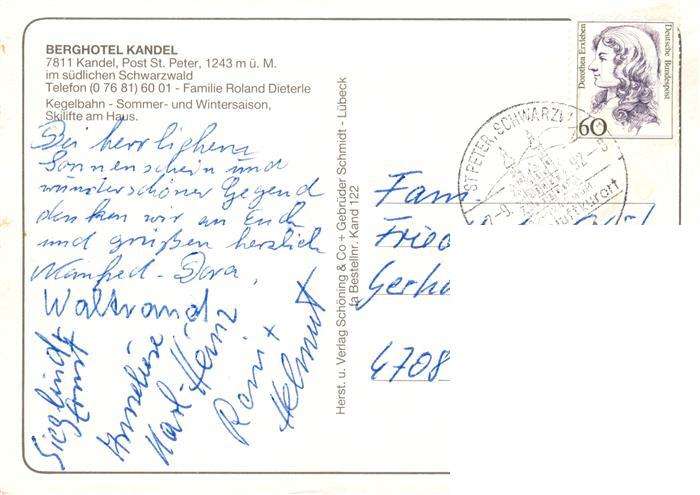 BERGHOTEL KANDEL
7811 Kandel, Post St. Peter, 1243 m ü. M.
im südlichen Schwarzwald
Telefon (0 76 81) 60 01 - Familie Roland Dieterle
Kegelbahn - Sommer- und Wintersaison,
Skilifte am Haus.
Bei herrlichem
Sonnenschein und
wunderschöner Gegend
denken wir an Euch
und grüßen herzlich
Manfred - Dora,
Waltraud
Sieglinde
Ernst
Anneliese
Karl-Heinz
Romi +
Helmut
Herst. u. Verlag Schöning & Co + Gebrüder Schmidt - Lübeck
fa Bestellnr. Kand 122
Dorothea Erxleben
Deutsche Bundespost
60
ST PETER, SCHWARZW
92
Luftkurort
Fam
Fried
Gerha
4708